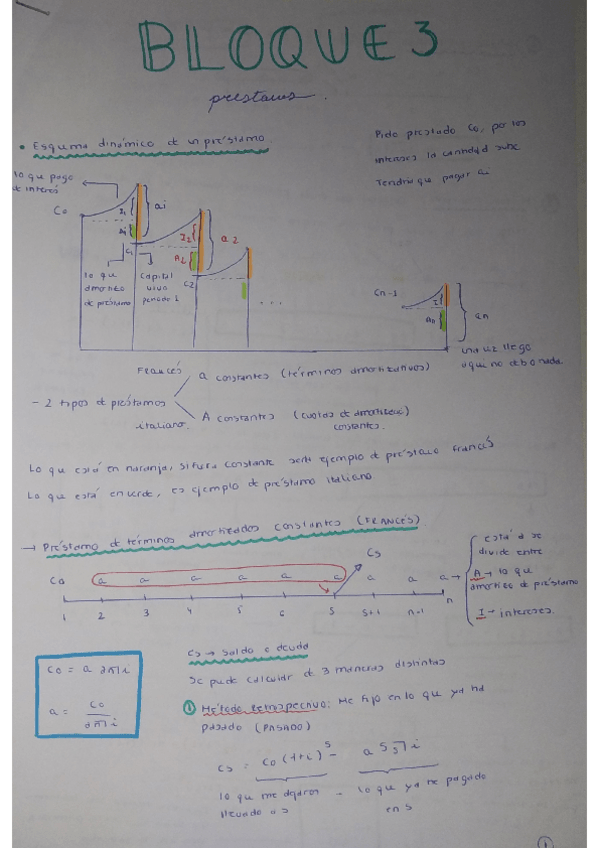 BLOQUE 3
prestamos.
• Esquema dinámico de un préstamo.
Pido prestado Co, por los
intereses la cantidad sube
Tendría que pagar a1
lo que pago
de interés
Co
I1
a1
A1
C1
I2
a2
A2
C2
lo que
amortizo
de préstamo
Capital
vivo
periodo 1
...
Cn-1
I
An
an
una vez llego
aquí no debo nada.
- 2 tipos de préstamos
Francés
a constantes (términos amortizativos)
italiano.
A constantes (cuotas de amortización)
constantes.
Lo que está en naranja, si fuera constante sería ejemplo de préstamo francés
Lo que está en verde, es ejemplo de préstamo italiano
→ Préstamo de términos amortizados constantes (FRANCÉS)
Co a a a a a a Cs a a a →
1 2 3 4 5 6 s s+1 n-1 n
está a se
divide entre
A → lo que
amortizo de préstamo
I → intereses.
Co = a a n┐i
a = Co / a n┐i
Cs → saldo o deuda
se puede calcular de 3 maneras distintas
① Método retrospectivo: Me fijo en lo que ya ha
pasado (PASADO)
Cs = Co (1+i)^s - a s s┐i
lo que me dejaron - lo que ya he pagado
llevado a s en s
1